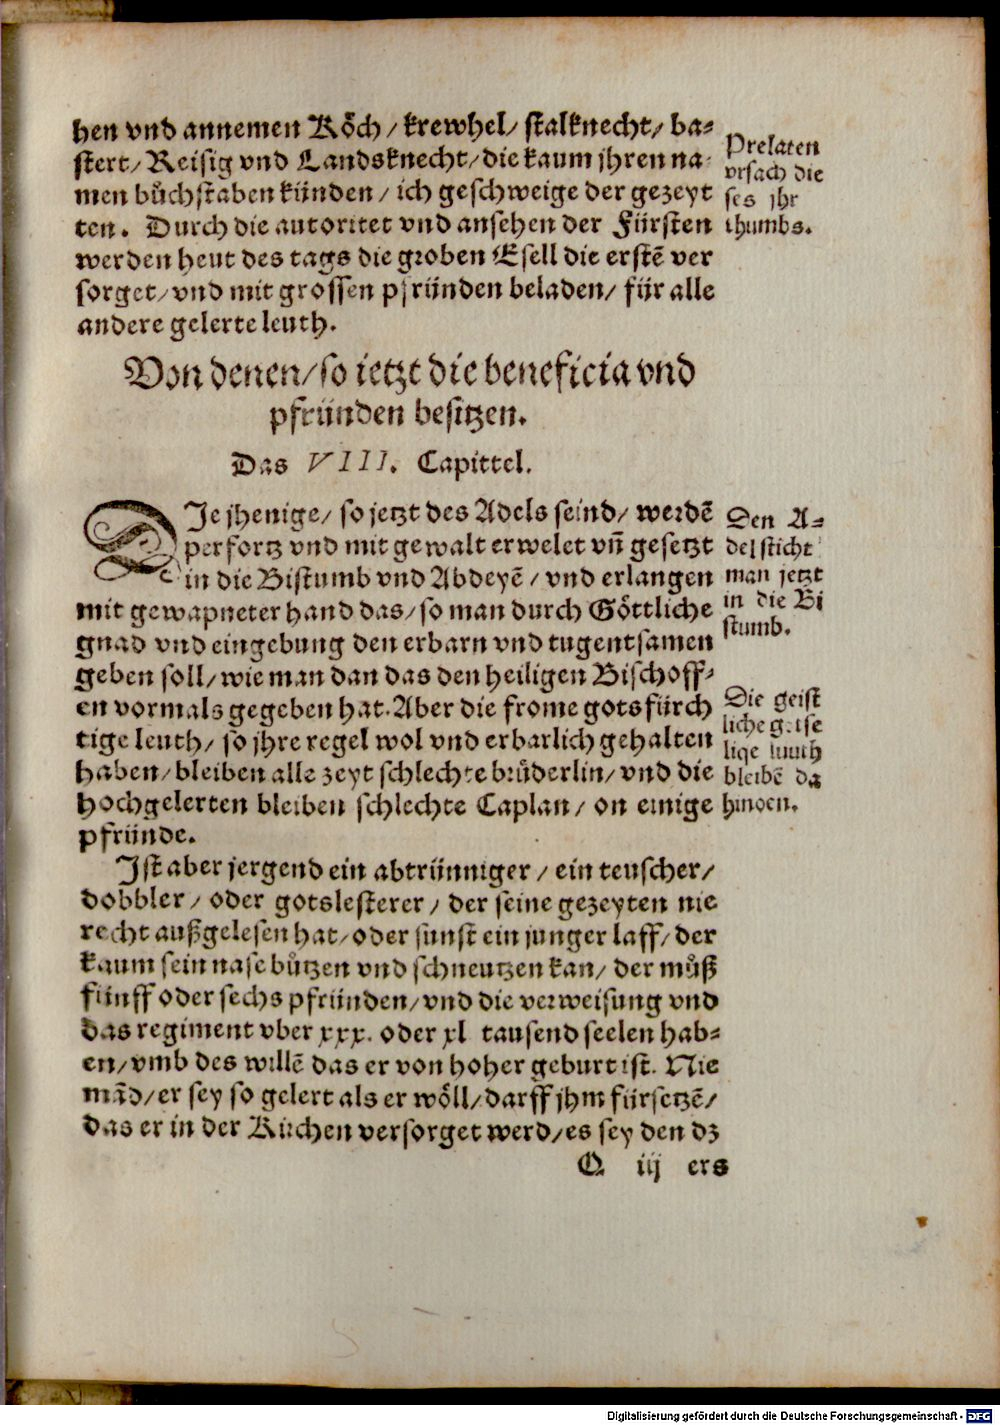 hen vnd annemen Köch/ krewhel/ stalknecht/ ba=
stert/ Reisig vnd Landsknecht/ die kaum jhren na-
men bůchstaben künden/ ich geschweige der gezeyt
ten. Durch die autoritet vnd ansehen der Fürsten
werden heut des tags die groben Esell die erstē ver
sorget/ vnd mit grossen pfründen beladen/ für alle
andere gelerte leuth.
Prelaten
vrsach die
ses jhr
thumbs.
Von denen/ so ietzt die beneficia vnd
pfründen besitzen.
Das VIII. Capittel.
DIe jhenige/ so jetzt des Adels seind/ werdē
perfortz vnd mit gewalt erwelet vn̄ gesetzt
in die Bistumb vnd Abdeyē/ vnd erlangen
mit gewapneter hand das/ so man durch Göttliche
gnad vnd eingebung den erbarn vnd tugentsamen
geben soll/ wie man dan das den heiligen Bischoff=
en vormals gegeben hat. Aber die frome gotsfürch
tige leuth/ so jhre regel wol vnd erbarlich gehalten
haben/ bleiben alle zeyt schlechte brüderlin/ vnd die
hochgelerten bleiben schlechte Caplan/ on einige
pfründe.
Den A=
del sticht
man jetzt
in die Bi
stumb.
Die geist
liche
bleibē da
hinden.
Ist aber jergend ein abtrünniger/ ein teuscher/
dobbler/ oder gotslesterer/ der seine gezeyten nie
recht außgelesen hat/ oder sunst ein junger laff/ der
kaum sein nase bützen vnd schneutzen kan/ der můß
fünff oder sechs pfründen/ vnd die verweisung vnd
das regiment vber xxx. oder xl tausend seelen hab=
en/ vmb des willē das er von hoher geburt ist. Nie
mād/ er sey so gelert als er wöll/ darff jhm fürsetzē/
das er in der Kuchen versorget werd/ es sey den dz
Q iij ers
Digitalisierung gefördert durch die Deutsche Forschungsgemeinschaft - DFG